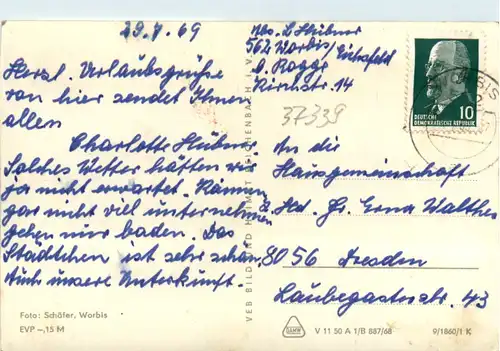 29.7.69
Herzl. Urlaubsgrüße
von hier sendet Ihnen
allen
Charlotte Hübner
Solches Wetter hätten wir
ja nicht erwartet. Können
gar nicht viel unternehmen
gehen nur baden. Das
Städtchen ist sehr schön
Auch unsere Unterkunft.
Foto: Schäfer, Worbis
EVP –,15 M
VEB BILD UND HEIMAT REICHENBACH I. V.
Abs. Hübner
562 Worbis/Eichsfeld
b. Rogge
Kirchstr. 14
37339
DEUTSCHE
DEMOKRATISCHE REPUBLIK
10
An die
Hausgemeinschaft
z. Hd. Fr. Erna Walther
8056 Dresden
Laubegasterstr. 43
V 11 50 A 1/B 887/68
9/1860/1 K